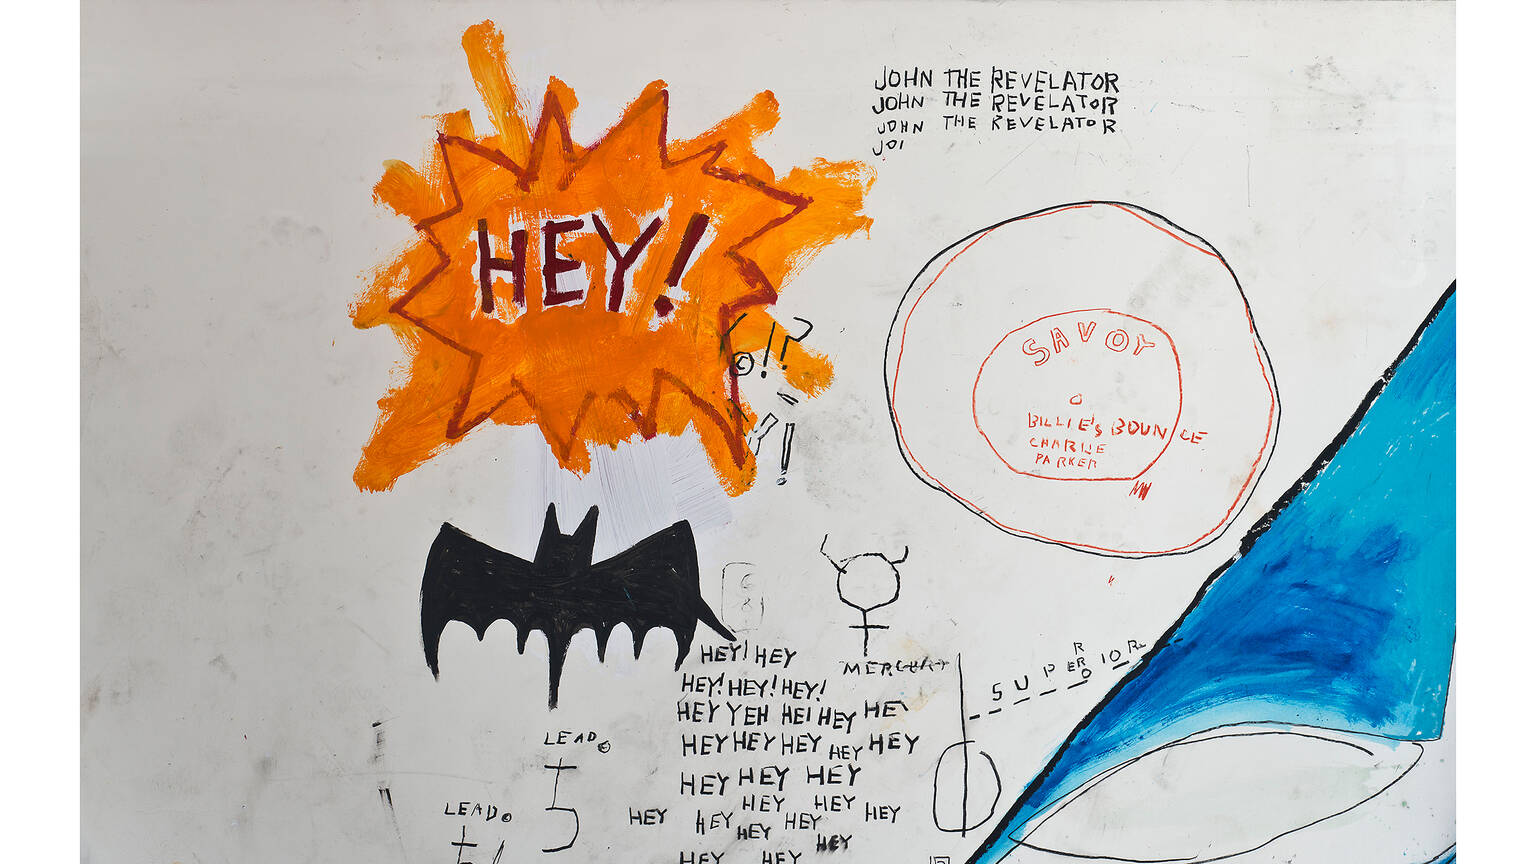 JOHN THE REVELATOR
JOHN THE REVELATOR
JOHN THE REVELATOR
JOI
HEY!
©!?
?!
SAVOY
BILLIE'S BOUNCE
CHARLIE
PARKER
MERCURY
SUPERIOR
HEY! HEY
HEY! HEY! HEY!
HEY YEH HEI HEY HE
HEY HEY HEY HEY HEY
HEY HEY HEY
HEY HEY
HEY HEY HEY HEY
HEY HEY
HEY HEY
LEAD©
LEAD